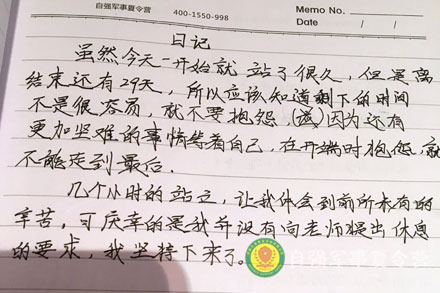 自强军事夏令营
400-1550-998
Memo No.
Date / /
日记
虽然今天一开始就站了很久，但是离
结束还有29天，所以应该知道剩下的时间
不是很容易，就不要抱怨（该）因为还有
更加坚难的事情等着自己，在开端时抱怨就
不能走到最后。
几个小时的站立，让我体会到前所未有的
辛苦，可庆幸的是我并没有向老师提出休息
的要求，我坚持下来了。
自强军事夏令营